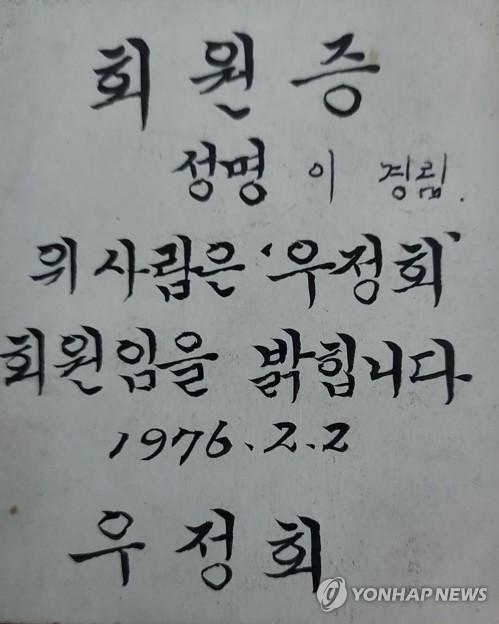 회원증
성명 이 경림.
위 사람은 '우정회'
회원임을 밝힙니다
1976.2.2
우정회
YONHAP NEWS